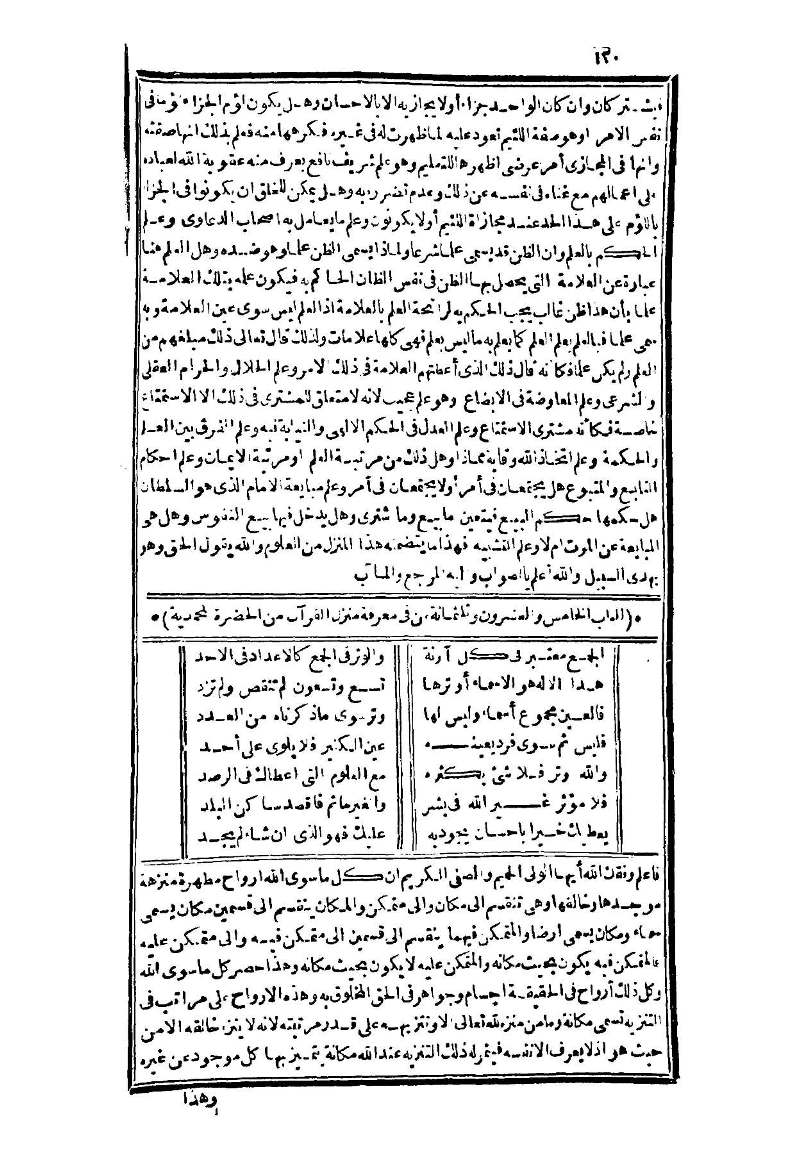 ١٢٠
فيشتركان وان كان الواحد جزاء أولا يجازيه الا بالاحسان وهل يكون لؤم الجزاء لؤما فى
نفس الامر اوهو صفة اللئيم تعود عليه لما ظهرت له فى غيره فكرهها منه فعلم بذلك انها صفته
وانها فى المجازى أمر عرضى اظهرها للتعليم وهو علم شريف نافع يعرف منه عقوبة الله لعباده
على اعمالهم مع غناه فى نفسه عن ذلك وعدم تضرره به وهل يمكن للخلق ان يكونوا فى الجزاء
باللؤم على هذا الحد عند مجازاة اللئيم أولا يكونون وعلم ما يعامل به اصحاب الدعاوى وعلم
الحكم بالعلم وان الظن قد يسمى علما شرعا ولماذا يسمى الظن علما وهو ضده وهل العلم هنا
عبارة عن العلامة التى يحصل بها الظن فى نفس الظان الحاكم به فيكون علمه بتلك العلامة
علما بأن هذا ظن غالب يجب الحكم به لرائحة العلم بالعلامة اذ العلم ليس سوى عين العلامة وبه
سمى علما فبالعلم يعلم العلم كما يعلم به ما ليس بعلم فهى كلها علامات ولذلك قال تعالى ذلك مبلغهم من
العلم ولم يكن علما فكأنه قال ذلك الذى أعطتهم العلامة فى ذلك الامر وعلم الحلال والحرام العقلى
والشرعى وعلم المعاوضة فى الابضاع وهو علم عجيب لانه لا متعلق للمشترى فى ذلك الا الاستمتاع
خاصة فكأنه مشترى الاستمتاع وعلم العدل فى الحكم الالهى والنيابة فيه وعلم الفرق بين العلم
والحكمة وعلم اتخاذ الله وقاية مماذا وهل ذلك من مرتبة العلم او مرتبة الايمان وعلم احكام
التابع والمتبوع هل يجتمعان فى أمر أولا يجتمعان فى أمر وعلم مبايعة الامام الذى هو السلطان
هل حكمها حكم البيع فيتعين ما بيع وما شترى وهل يدخل فيها بيع النفوس وهل هو
المبايعة عن الموت ام لا وعلم التشبيه فهذا ما يتضمنه هذا المنزل من العلوم والله يقول الحق وهو
يهدى السبيل والله أعلم بالصواب واليه المرجع والمآب
• (الباب الخامس والعشرون وثلثمائة فى معرفة منزل القرآن من الحضرة المحمدية) •
الجمع معتبر فى كل آونة والوتر فى الجمع كالاعداد فى الاحد
هذا الاله هو الاسماء أوترها تسع وتسعون لم تنقص ولم تزد
فالعين مجموع أسماء وليس لها وتر سوى ماذكرناه من العدد
فليس ثم سوى فرد يعينه عين الكثير فلا يلوى على أحد
والله وتر فلا شئ يكثره مع العلوم التى اعطاك فى الرصد
فلا مؤثر غير الله فى بشر والغير ما ثم فاقصد ساكن البلد
يعطيك خيرا باحسان يجود به عليك فهو الذى ان شاء لم يجد
فاعلم وفقك الله أيها الولى الحميم والصفى الكريم ان كل ما سوى الله ارواح مطهرة منزهة
موجدها وخالقها وهى تنقسم الى مكان والى متمكن والمكان ينقسم الى قسمين مكان يسمى
سماء ومكان يسمى ارضا والمتمكن فيهما ينقسم الى قسمين الى متمكن فيه والى متمكن عليه
فالمتمكن فيه يكون بحيث مكانه والمتمكن عليه لا يكون بحيث مكانه وهذا حصر كل ما سوى الله
وكل ذلك أرواح فى الحقيقة اجسام وجواهر فى الحق المخلوق به وهذه الارواح على مراتب فى
التنزيه تسمى مكانة وما من منزه لله تعالى الا وتنزيهه على قدر مرتبته لانه لا ينزه خالقه الا من
حيث هو اذ لا يعرف الا نفسه فيثمر له ذلك التنزيه عند الله مكانة يتميز بها كل موجود عن غيره
وهذا